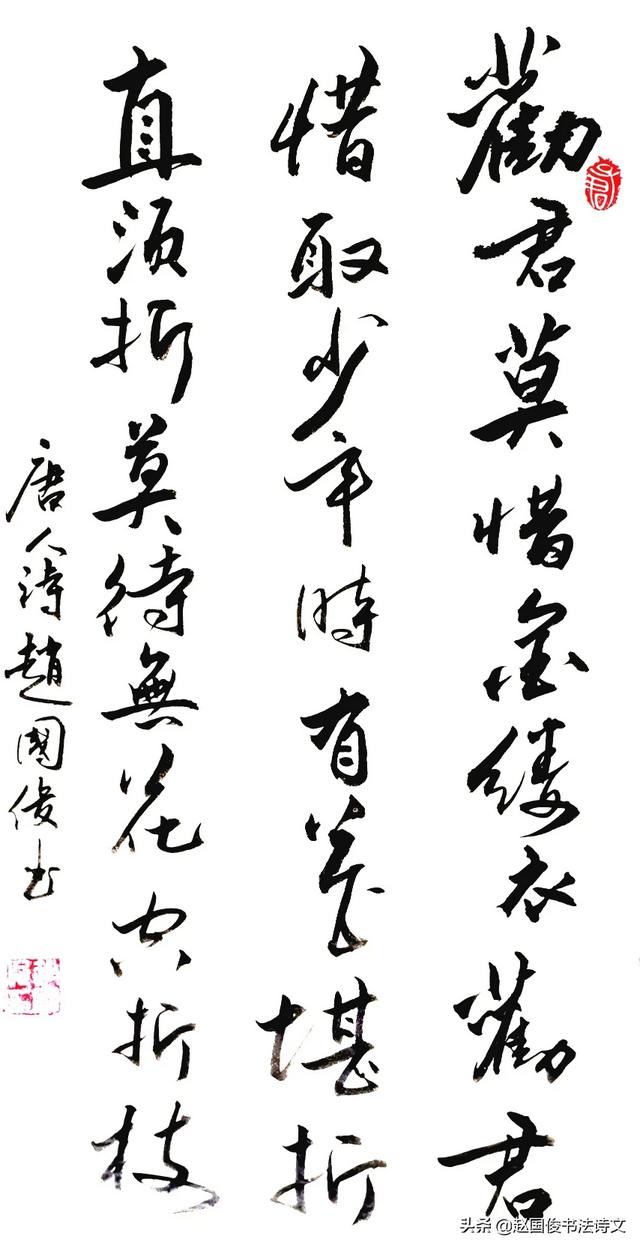 勸君莫惜金缕衣勸君
惜取少年時有花堪折
直須折莫待無花空折枝
唐人詩趙國俊书
头条 @赵国俊书法诗文